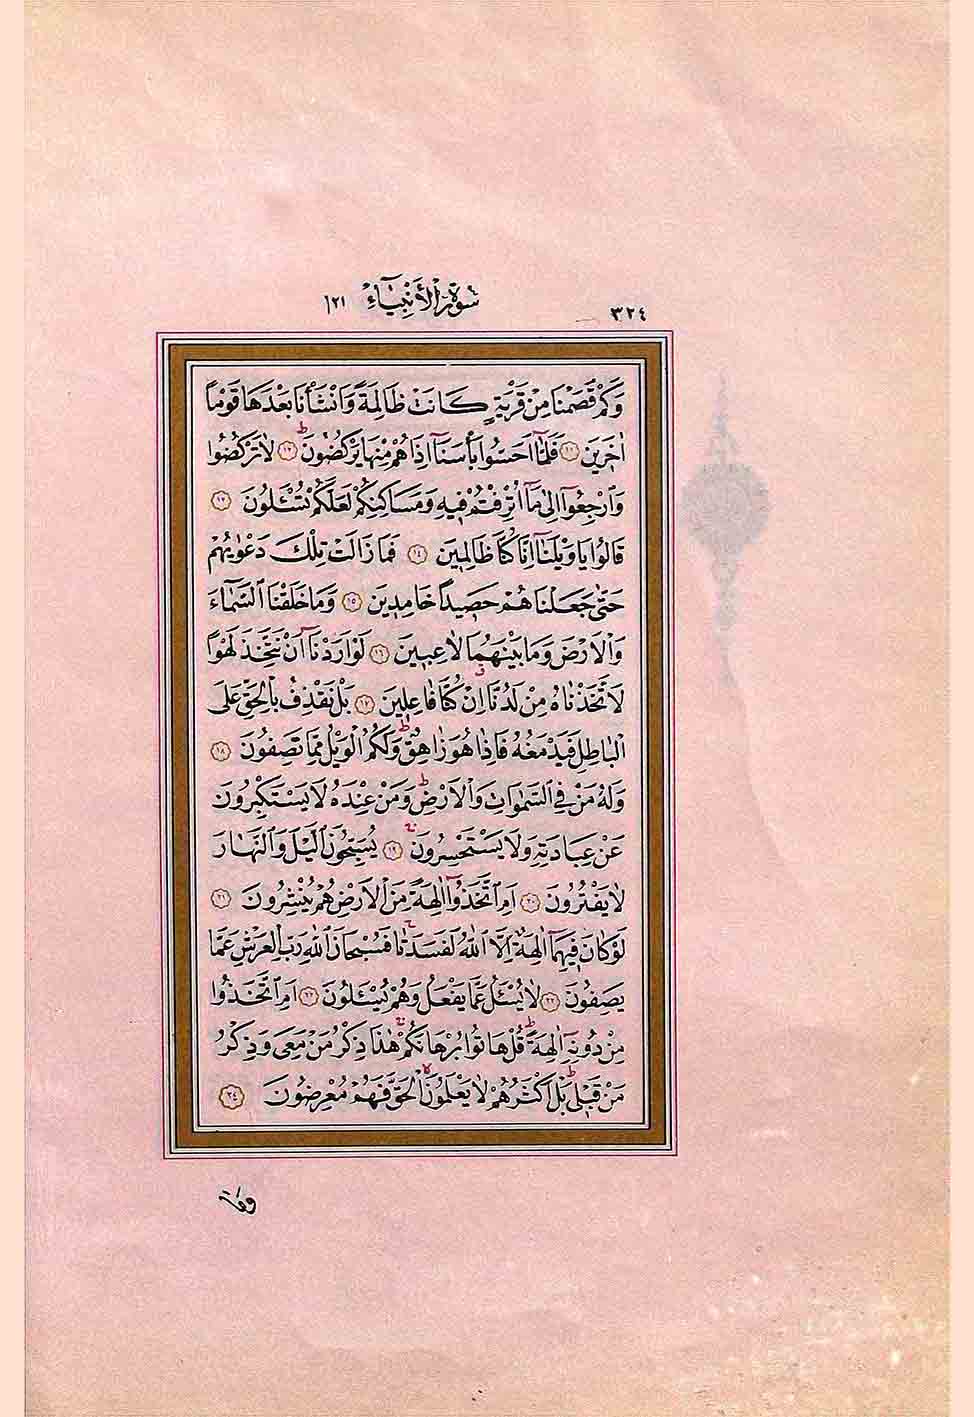 ٣٢٤
سورة الأنبياء ٢١
وَكَمْ قَصَمْنَا مِنْ قَرْيَةٍ كَانَتْ ظَالِمَةً وَاَنْشَأْنَا بَعْدَهَا قَوْمًا
اٰخَرٖينَ ١١ فَلَمَّٓا اَحَسُّوا بَأْسَنَٓا اِذَا هُمْ مِنْهَا يَرْكُضُونَؕ ١٢ لَا تَرْكُضُوا
وَارْجِعُٓوا اِلٰى مَٓا اُتْرِفْتُمْ فٖيهِ وَمَسَاكِنِكُمْ لَعَلَّكُمْ تُسْـَٔلُونَ ١٣
قَالُوا يَا وَيْلَنَٓا اِنَّا كُنَّا ظَالِمٖينَ ١٤ فَمَا زَالَتْ تِلْكَ دَعْوٰيهُمْ
حَتّٰى جَعَلْنَاهُمْ حَصٖيدًا خَامِدٖينَ ١٥ وَمَا خَلَقْنَا السَّمَٓاءَ
وَالْاَرْضَ وَمَا بَيْنَهُمَا لَاعِبٖينَ ١٦ لَوْ اَرَدْنَٓا اَنْ نَتَّخِذَ لَهْوًا
لَاتَّخَذْنَاهُ مِنْ لَدُنَّاۗ اِنْ كُنَّا فَاعِلٖينَ ١٧ بَلْ نَقْذِفُ بِالْحَقِّ عَلَى
الْبَاطِلِ فَيَدْمَغُهُ فَاِذَا هُوَ زَاهِقٌؕ وَلَكُمُ الْوَيْلُ مِمَّا تَصِفُونَ ١٨
وَلَهُ مَنْ فِي السَّمٰوَاتِ وَالْاَرْضِؕ وَمَنْ عِنْدَهُ لَا يَسْتَكْبِرُونَ
عَنْ عِبَادَتِهٖ وَلَا يَسْتَحْسِرُونَۚ ١٩ يُسَبِّحُونَ الَّيْلَ وَالنَّهَارَ
لَا يَفْتُرُونَ ٢٠ اَمِ اتَّخَذُٓوا اٰلِهَةً مِنَ الْاَرْضِ هُمْ يُنْشِرُونَ ٢١
لَوْ كَانَ فٖيهِمَٓا اٰلِهَةٌ اِلَّا اللّٰهُ لَفَسَدَتَاۚ فَسُبْحَانَ اللّٰهِ رَبِّ الْعَرْشِ عَمَّا
يَصِفُونَ ٢٢ لَا يُسْـَٔلُ عَمَّا يَفْعَلُ وَهُمْ يُسْـَٔلُونَ ٢٣ اَمِ اتَّخَذُوا
مِنْ دُونِهٖٓ اٰلِهَةًؕ قُلْ هَاتُوا بُرْهَانَكُمْۚ هٰذَا ذِكْرُ مَنْ مَعِيَ وَذِكْرُ
مَنْ قَبْلٖيؕ بَلْ اَكْثَرُهُمْ لَا يَعْلَمُونَۙ الْحَقَّ فَهُمْ مُعْرِضُونَ ٢٤
وما